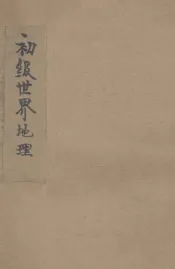 初级世界地理